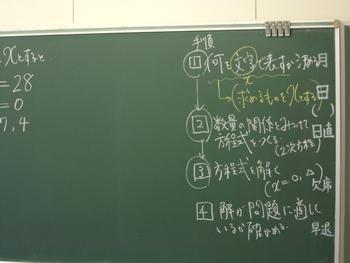 xとすると
= 28
= 0
7, 4
手順
1 何を文字で表すか決める
x
(求めるものをxとする)
2 数量の関係をみつけて
方程式をつくる
(2次方程式)
3 方程式を解く
(x=0, △)
4 解が問題に適して
いるか確かめる
月
日
( )
日直
欠席
早退